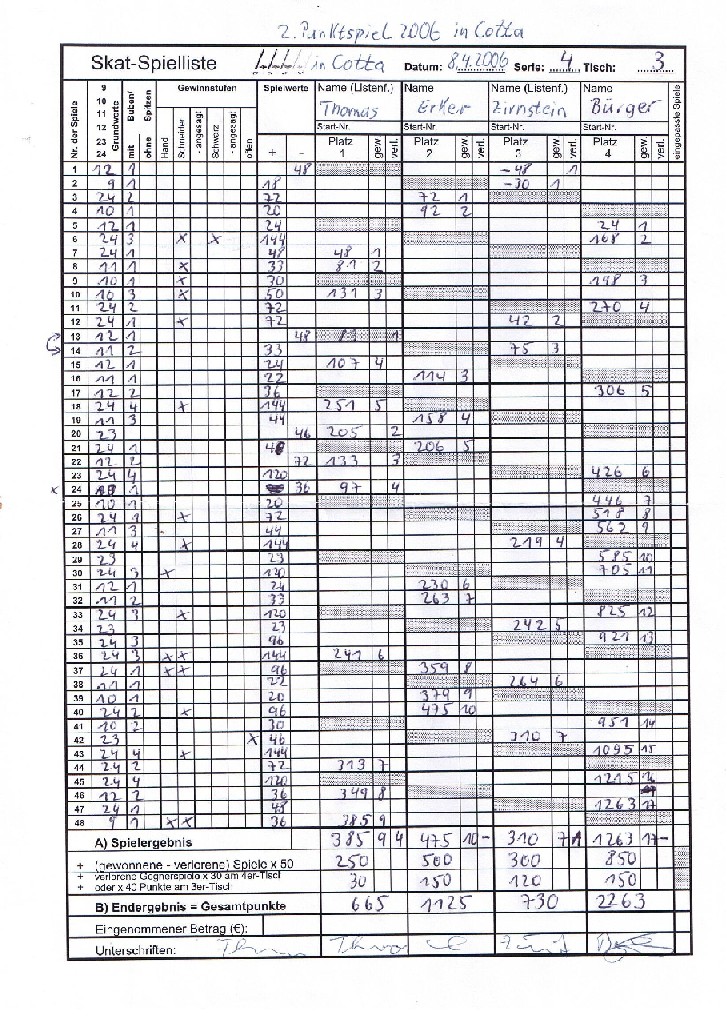 2. Punktspiel 2006 in Cotta
Skat-Spielliste in Cotta Datum: 8.4.2006 Serie: 4 Tisch: 3
Nr. der Spiele 9 10 11 12 23 24 Grundwerte Buben/ Spitzen mit ohne Gewinnstufen Hand Schneider - angesagt Schwarz - angezagt offen Spielwerte + - Name (Listenf.) Name Name (Listenf.) Name eingepasste Spiele
Thomas Erker Zirnstein Bürger
Start-Nr. Start-Nr. Start-Nr. Start-Nr.
Platz 1 gew. verl. Platz 2 gew. verl. Platz 3 gew. verl. Platz 4 gew. verl.
1 12 1 48 -48 1
2 9 1 18 -30 1
3 24 2 72 72 1
4 10 1 20 92 2
5 12 1 24 24 1
6 24 3 x x 144 168 2
7 24 1 48 48 1
8 11 1 x 33 81 2
9 10 1 x 30 198 3
10 10 3 x 50 131 3
11 24 2 72 270 4
12 24 1 x 72 42 2
13 12 1 48 83 1
14 11 2 33 75 3
15 12 1 24 107 4
16 11 1 22 114 3
17 12 2 36 306 5
18 24 4 x 144 251 5
19 11 3 44 158 4
20 23 46 205 2
21 24 1 48 206 5
22 12 2 72 133 3
23 24 4 120 426 6
x 24 1 36 97 4
25 10 1 20 446 7
26 24 1 x 72 518 8
27 11 3 - 44 562 9
28 24 4 x 144 219 4
29 23 23 585 10
30 24 3 x 120 705 11
31 12 1 24 230 6
32 11 2 33 263 7
33 24 3 x 120 825 12
34 23 23 242 5
35 24 3 96 921 13
36 24 3 x x 144 241 6
37 24 1 x x 96 359 8
38 11 1 22 264 6
39 10 1 20 379 9
40 24 2 x 96 475 10
41 10 2 30 951 14
42 23 x 46 310 7
43 24 4 x 144 1095 15
44 24 2 72 313 7
45 24 4 120 1215 16
46 12 2 36 349 8
47 24 1 48 1263 17
48 9 1 x x 36 385 9
A) Spielergebnis 385 9 4 475 10 - 310 7 1 1263 17 -
+ (gewonnene - verlorene) Spiele x 50 250 500 300 850
+ verlorene Gegnerspiele x 30 am 4er-Tisch
+ oder x 40 Punkte am 3er-Tisch 30 150 120 150
B) Endergebnis = Gesamtpunkte 665 1125 730 2263
Eingenommener Betrag (€):
Unterschriften: